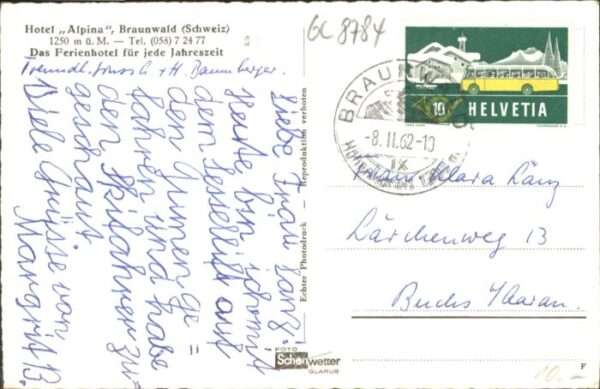 Hotel „Alpina“, Braunwald (Schweiz)
1250 m ü. M. — Tel. (058) 7 24 77
Das Ferienhotel für jede Jahreszeit
Freundl. Gruss + H. Baumberger.
Liebe Frau Lanz!
Heute bin ich mit
dem Sessellift auf
den Gumen ge=
fahren und habe
den Skifahrer zu=
geschaut.
Viele Grüsse von
Margrit B.
Echter Photodruck — Reproduktion verboten
FOTO
Schönwetter
GLARUS
GL 8784
10 HELVETIA
BRAUNWALD
-8.II.62-10
Frau Klara Lanz
Lärchenweg 13
Buchs /Aarau.
F
10.-